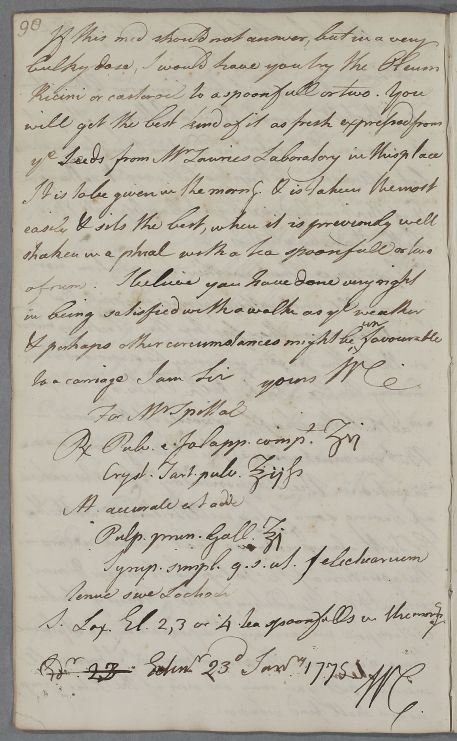 90
If this med should not answer, but in a very
bulky dose, I would have you try the Oleum
Ricini or castor oil to a spoonfull or two. You
will get the best kind of it as fresh expressed from
ye Seeds from Mr Lauries Laboratory in this place
It is to be given in the morng. & is taken the most
easily & sits the best, when it is previously well
shaken in a phial with a tea spoonfull or two
of rum. I believe you have done very right
in being satisfied with a walk as ye weather
& perhaps other circumstances might be unfavourable
to a carriage I am Sir yours WC
For Mr Spittal
Rx Pulv. e Jalapp. compt. ʒij
Cryst. Tart. pulv. ʒijſs
M. accurate et adde
Pulp. prun. Gall. ℥j
Syrup. simpl. q.s. ut f electuarium
tenue sive Lochoch
S. Lax. El. 2, 3 or 4 tea spoonfulls in the morng
Edr 23 Edinr 23d Janry 1775 WC